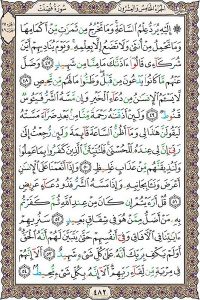 الجزء الخامس والعشرون سورة فصلت
۞ إِلَيْهِ يُرَدُّ عِلْمُ السَّاعَةِ وَمَا تَخْرُجُ مِن ثَمَرَاتٍ مِّنْ أَكْمَامِهَا
وَمَا تَحْمِلُ مِنْ أُنثَىٰ وَلَا تَضَعُ إِلَّا بِعِلْمِهِ وَيَوْمَ يُنَادِيهِمْ أَيْنَ
شُرَكَائِي قَالُوا آذَنَّاكَ مَا مِنَّا مِن شَهِيدٍ ٤٧ وَضَلَّ
عَنْهُم مَّا كَانُوا يَدْعُونَ مِن قَبْلُ وَظَنُّوا مَا لَهُم مِّن مَّحِيصٍ ٤٨
لَّا يَسْأَمُ الْإِنسَانُ مِن دُعَاءِ الْخَيْرِ وَإِن مَّسَّهُ الشَّرُّ فَيَئُوسٌ
قَنُوطٌ ٤٩ وَلَئِنْ أَذَقْنَاهُ رَحْمَةً مِّنَّا مِن بَعْدِ ضَرَّاءَ مَسَّتْهُ
لَيَقُولَنَّ هَٰذَا لِي وَمَا أَظُنُّ السَّاعَةَ قَائِمَةً وَلَئِن رُّجِعْتُ إِلَىٰ
رَبِّي إِنَّ لِي عِندَهُ لَلْحُسْنَىٰ فَلَنُنَبِّئَنَّ الَّذِينَ كَفَرُوا بِمَا عَمِلُوا
وَلَنُذِيقَنَّهُم مِّنْ عَذَابٍ غَلِيظٍ ٥٠ وَإِذَا أَنْعَمْنَا عَلَى الْإِنسَانِ
أَعْرَضَ وَنَأَىٰ بِجَانِبِهِ وَإِذَا مَسَّهُ الشَّرُّ فَذُو دُعَاءٍ عَرِيضٍ
٥١ قُلْ أَرَأَيْتُمْ إِن كَانَ مِنْ عِندِ اللَّهِ ثُمَّ كَفَرْتُم بِهِ
مَنْ أَضَلُّ مِمَّنْ هُوَ فِي شِقَاقٍ بَعِيدٍ ٥٢ سَنُرِيهِمْ
آيَاتِنَا فِي الْآفَاقِ وَفِي أَنفُسِهِمْ حَتَّىٰ يَتَبَيَّنَ لَهُمْ أَنَّهُ الْحَقُّ
أَوَلَمْ يَكْفِ بِرَبِّكَ أَنَّهُ عَلَىٰ كُلِّ شَيْءٍ شَهِيدٌ ٥٣ أَلَا إِنَّهُمْ
فِي مِرْيَةٍ مِّن لِّقَاءِ رَبِّهِمْ أَلَا إِنَّهُ بِكُلِّ شَيْءٍ مُّحِيطٌ ٥٤
٤٨٢